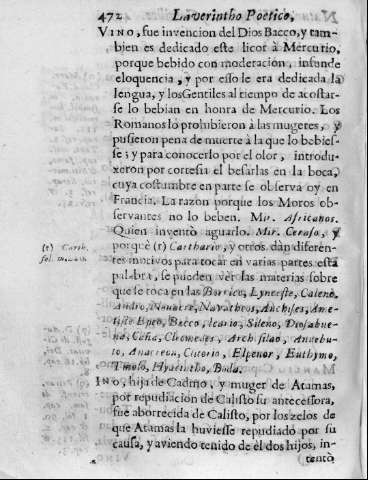 472 Laverintho Poetico,
VINO, fue invencion del Dios Bacco, y tam-
bien es dedicado este licor à Mercurio,
porque bebido con moderación, infunde
eloquencia, y por esso le era dedicada la
lengua, y los Gentiles al tiempo de acostar-
se lo bebian en honra de Mercurio. Los
Romanos lo prohibieron à las mugeres, y
pusieron pena de muerte à la que lo bebies-
se; y para conocerlo por el olor, introdu-
xeron por cortesia el besarlas en la boca,
cuya costumbre en parte se observa oy en
Francia. La razon porque los Moros ob-
servantes no lo beben. Mir. Africanos.
Quien inventò aguarlo. Mir. Ceraso, y
porquè (r) Carthario, y otros dàn diferen-
(r) Carth.
tes motivos para tocar en varias partes esta
fol.
palabra, se pueden ver las materias sobre
que se toca en las Borrico, Lynceste, Caleno,
Andro, Nauatheos, Anchises,
Epeo, Bacco, Icario, Sileno,
Ceña, Cleomedes, Archesilao,
to, Anacreon, Cisorio, Elpenor, Euthymo,
Tmolo, Hyacintho, Buda.
INO, hija de Cadmo, y muger de Atamas,
por repudiacion de Calisto su antecessora,
fue aborrecida de Calisto, por los zelos de
que Atamas la huviesse repudiado por su
causa, y aviendo tenido de èl dos hijos, in-
tentò